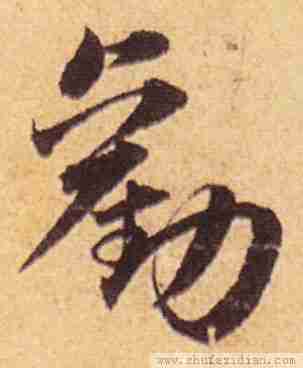 勸
www.shufazidian.com